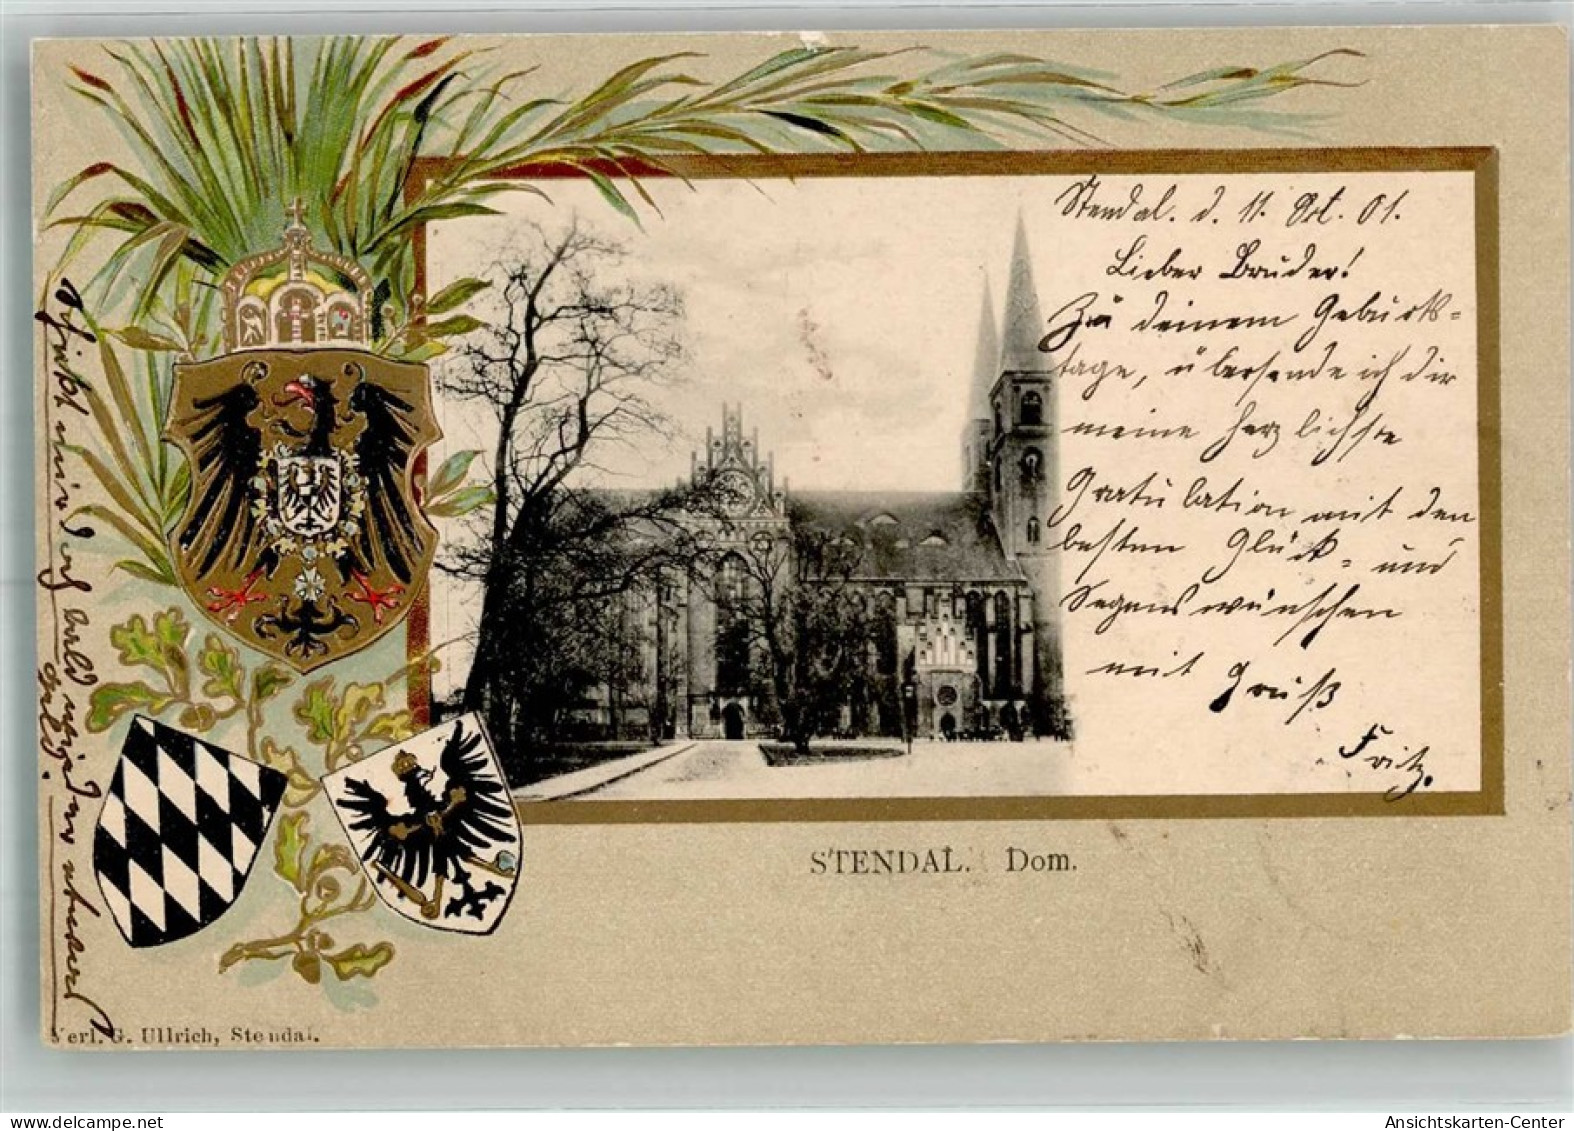 Stendal. d. 11. Oct. 01.
Lieber Bruder!
Zu deinem Geburts-
tage, übersende ich dir
meine herzlichste
Gratulation mit den
besten Glück- und
Segenswünschen
mit Gruß
Fritz.
Schickt mir doch bald wieder etwas
Geld.
STENDAL. Dom.
Verl. G. Ullrich, Stendal.
https://www.delcampe.net
Ansichtskarten-Center